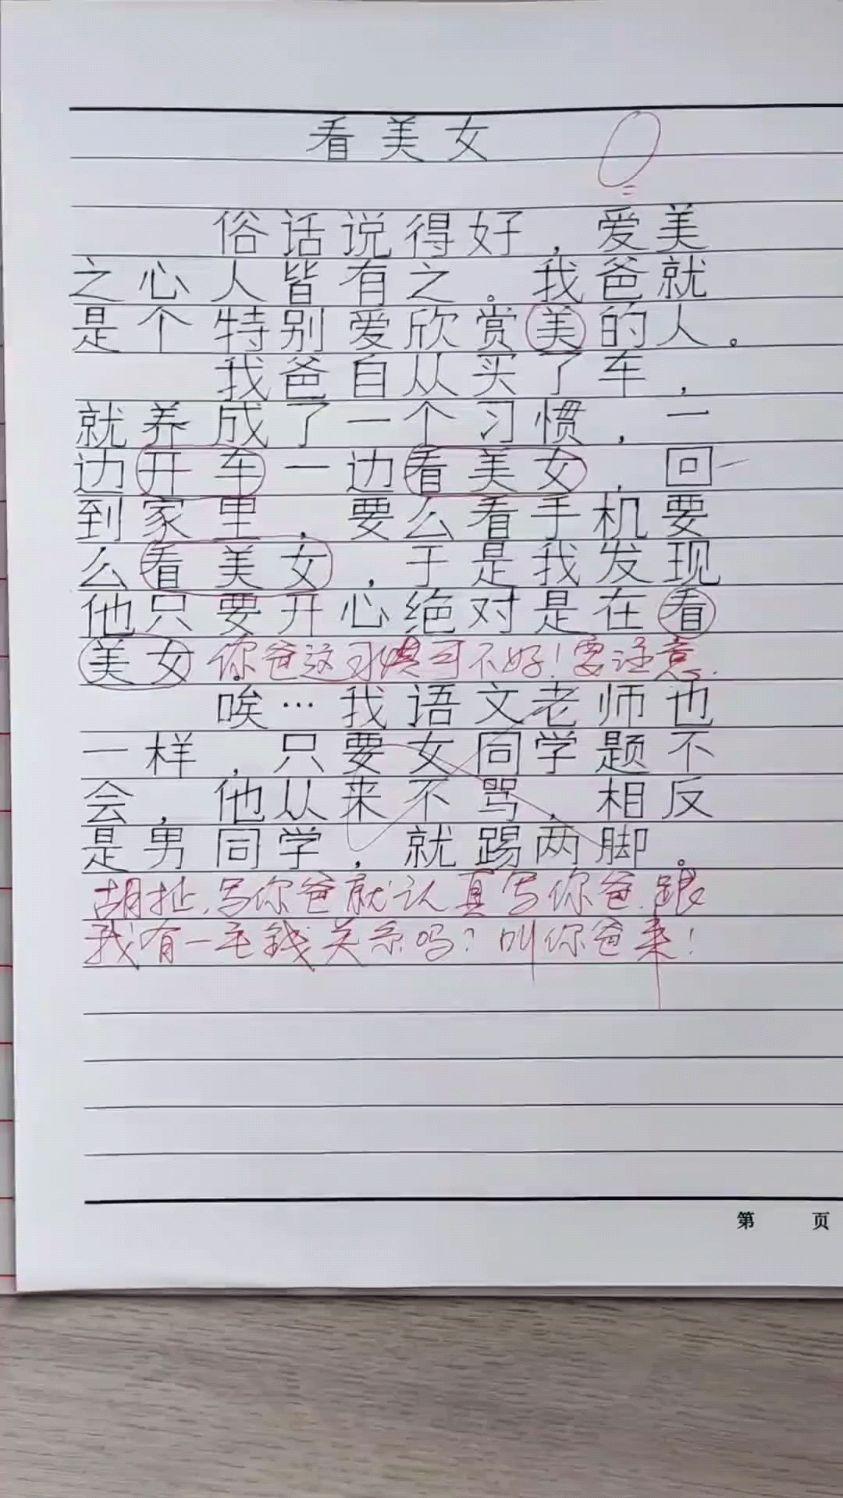 看美女
0
俗话说得好，爱美
之心人皆有之。我爸就
是个特别爱欣赏美的人。
我爸自从买了车，
就养成了一个习惯，一
边开车一边看美女，回
到家里，要么看手机要
么看美女，于是我发现
他只要开心绝对是在看
美女 你爸这习惯可不好！要注意.
唉…我语文老师也
一样，只要女同学题不
会，他从来不骂，相反
是男同学，就踢两脚。
胡扯，写你爸就认真写你爸，跟
我有一毛钱关系吗？叫你爸来！
第 页